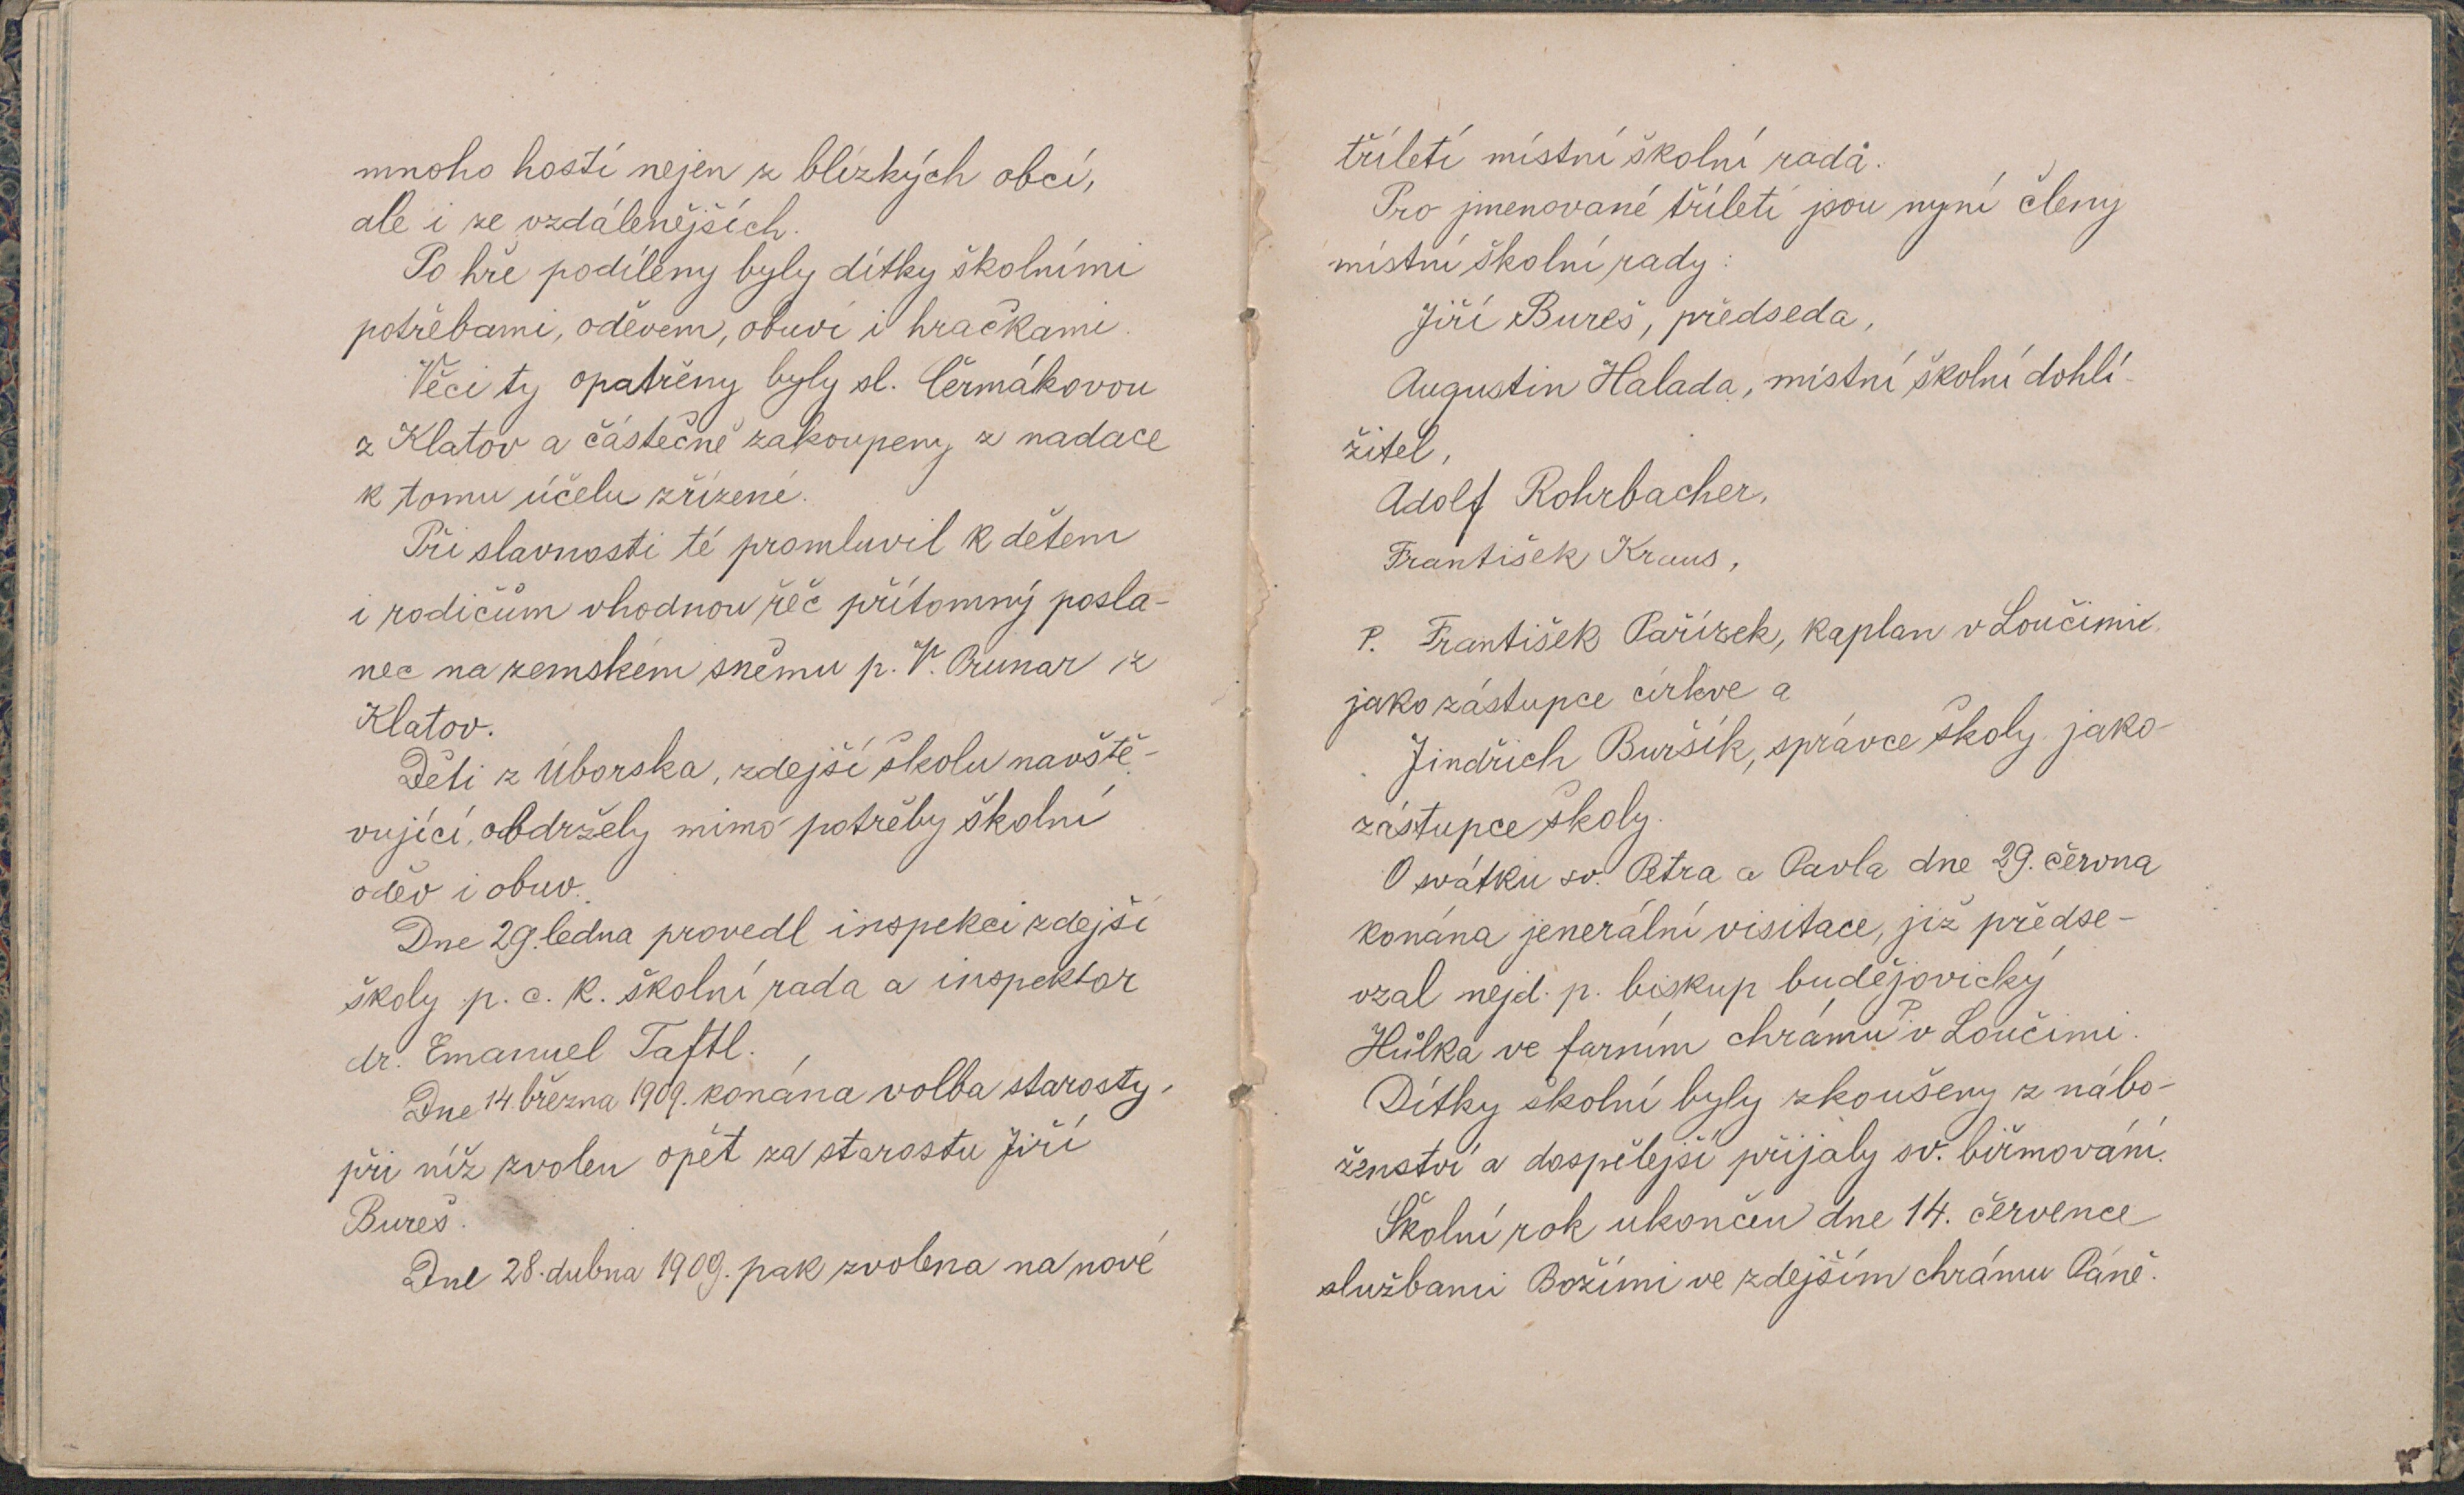 mnoho hostí nejen z blízkých obcí,
ale i ze vzdálenějších.
Po hře podíleny byly dítky školními
potřebami, oděvem, obuví i hračkami.
Věci ty opatřeny byly sl. Čermákovou
z Klatov a částečně zakoupeny z nadace
k tomu účelu zřízené.
Při slavnosti té promluvil k dětem
i rodičům vhodnou řeč přítomný posla-
nec na zemském sněmu p. V. Prunar z
Klatov.
Děti z Úborska, zdejší školu navště-
vující, obdržely mimo potřeby školní
oděv i obuv.
Dne 29. ledna provedl inspekci zdejší
školy p. c. k. školní rada a inspektor
dr. Emanuel Taftl.
Dne 14. března 1909. konána volba starosty,
při níž zvolen opět za starostu Jiří
Bureš.
Dne 28. dubna 1909. pak zvolena na nové
tříletí místní školní rada.
Pro jmenované tříletí jsou nyní členy
místní školní rady:
Jiří Bureš, předseda,
Augustin Halada, místní školní dohlí-
žitel,
Adolf Rohrbacher,
František Kraus,
P. František Pařízek, kaplan v Loučimi
jako zástupce církve a
Jindřich Buršík, správce školy jako
zástupce školy.
O svátku sv. Petra a Pavla dne 29. června
konána jenerální visitace, již předse-
vzal nejd. p. biskup budějovický
Hůlka ve farním chrámu P. v Loučimi.
Dítky školní byly zkoušeny z nábo-
ženství a dospělejší přijaly sv. biřmování.
Školní rok ukončen dne 14. července
službami Božími ve zdejším chrámu Páně.